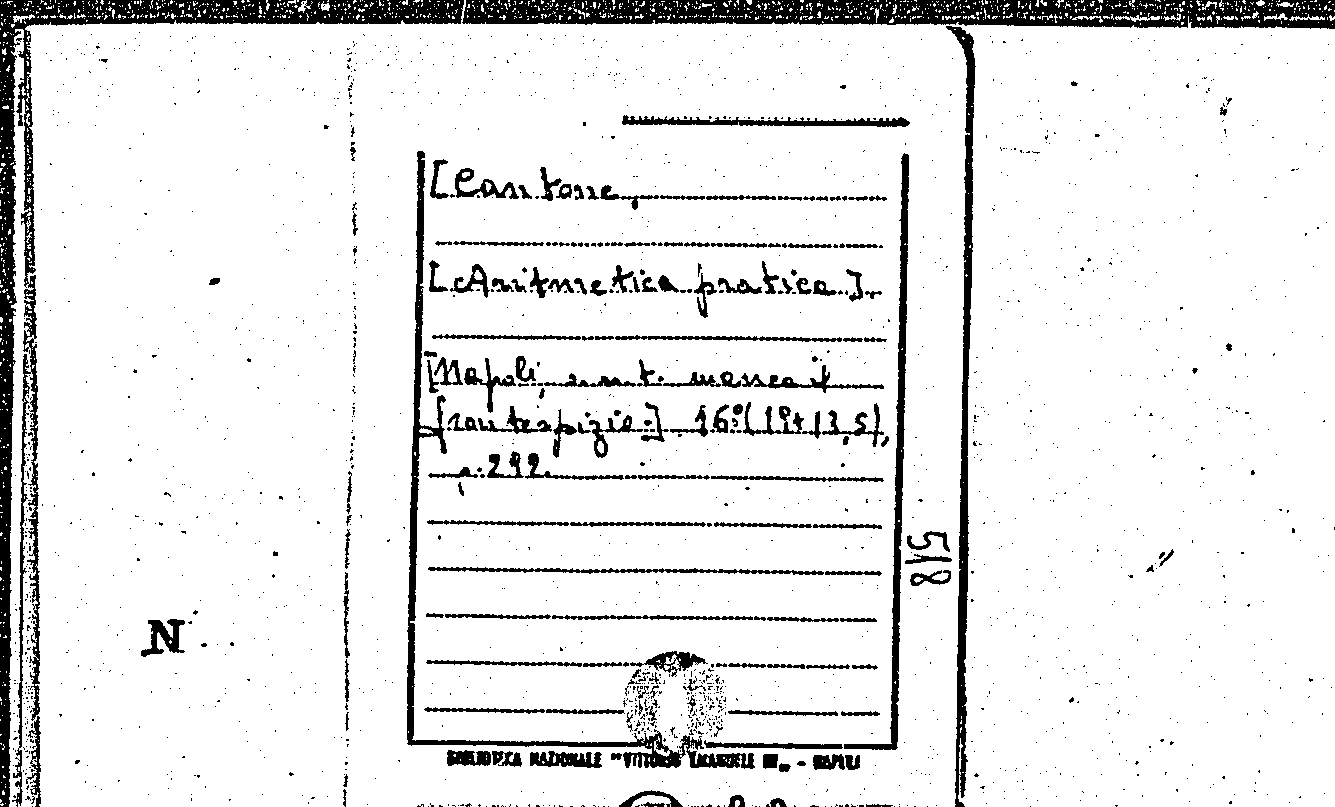 [Cantone,
[Aritmetica pratica].
[Napoli, s. n. t. manca il
frontespizio.] 16º(19+13,5),
p. 292.
518
N
BIBLIOTECA NAZIONALE "VITTORIO EMANUELE III„ - NAPOLI